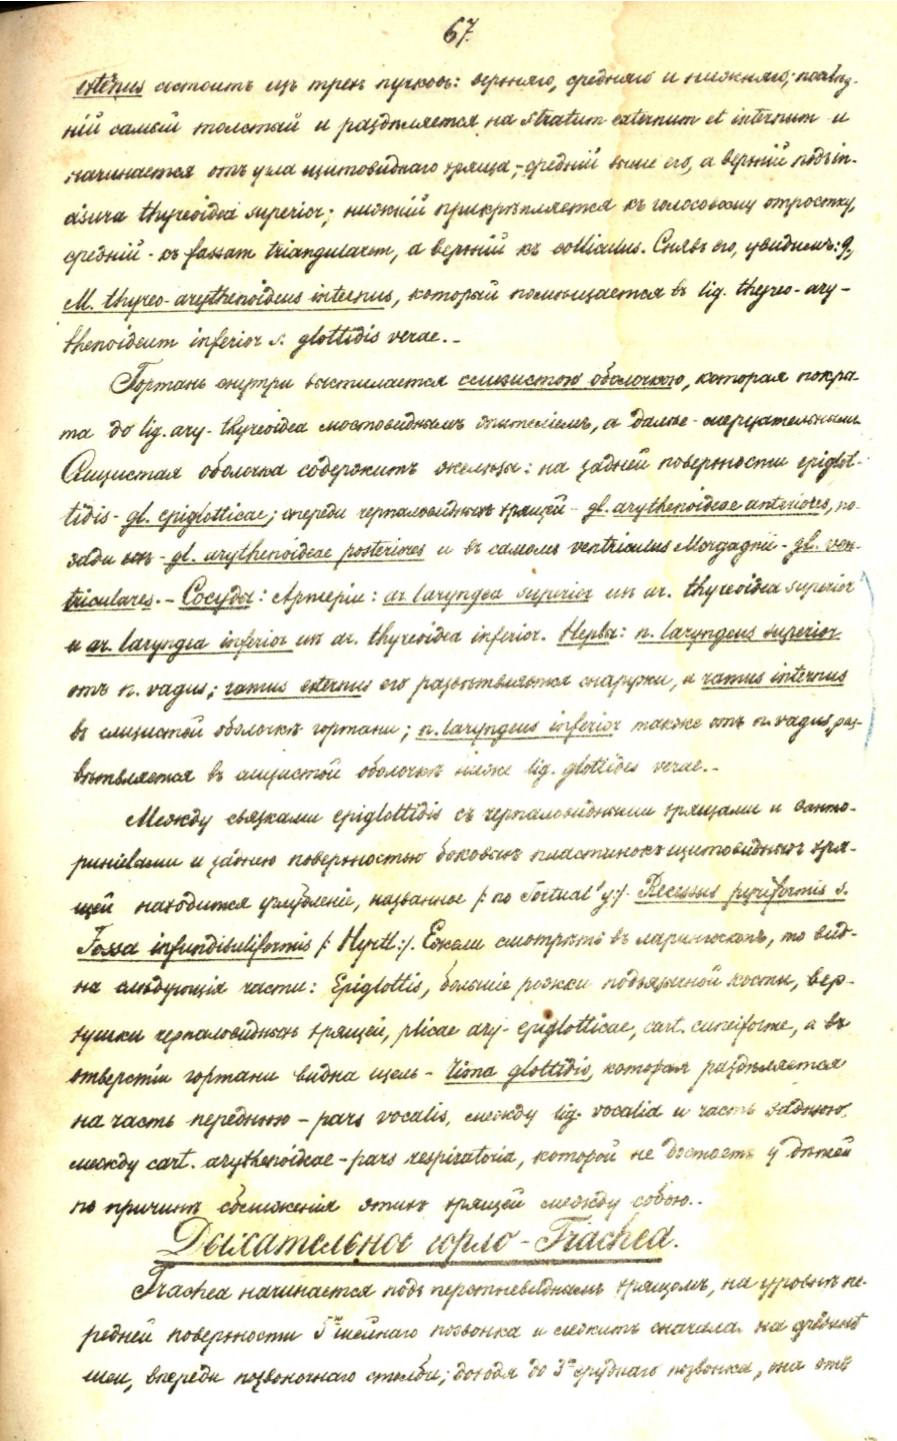 67.
externus состоитъ изъ трехъ пучковъ: верхняго, средняго и нижняго; послѣд-
ній самый толстый и раздѣляется на stratum externum et internum и
начинается отъ угла щитовиднаго хряща, - средній выше его, а верхній подъ in-
cisura thyreoidea superior; нижній прикрѣпляется къ голосовому отростку,
средній - къ fossam triangularem, а верхній къ colliculus. Снявъ его, увидимъ:
M. thyreo-arythenoideus internus, который помѣщается въ lig. thyreo-ary-
thenoideum inferior s. glottidis verae. -
Гортань внутри выстилается слизистою оболочкою, которая покры-
та до lig. ary-thyreoidea мостовиднымъ эпителіемъ, а далѣе - мерцательнымъ.
Слизистая оболочка содержитъ железы: на задней поверхности epiglot-
tidis - gl. epiglotticae; спереди черпаловидныхъ хрящей - gl. arythenoideae anteriores, по-
зади ихъ - gl. arythenoideae posteriores и въ самомъ ventriculus Morgagnii - gl. ven-
triculares. - Сосуды: Артеріи: ar. laryngea superior изъ ar. thyreoidea superior
и ar. laryngea inferior изъ ar. thyreoidea inferior. Нервы: n. laryngeus superior
отъ n. vagus; ramus externus его развѣтвляется снаружи, а ramus internus
въ слизистой оболочкѣ гортани; n. laryngeus inferior также отъ n. vagus, раз-
вѣтвляется въ слизистой оболочкѣ ниже lig. glottides verae. -
Между связками epiglottidis съ черпаловидными хрящами и санто-
риніевыми и заднею поверхностью боковыхъ пластинокъ щитовидныхъ хря-
щей находится углубленіе, названное /: по Tortual'у :/ Recessus pyriformis s.
Fossa infundibuliformis /: Hyrtl :/. Ежели смотрѣть въ ларингоскопъ, то вид-
на слѣдующія части: Epiglottis, большіе рожки подъязычной кости, вер-
хушки черпаловидныхъ хрящей, plicae ary-epiglotticae, cart. cuneiforme, а въ
отверстіи гортани видна щель - rima glottidis, которая раздѣляется
на часть переднюю - pars vocalis, между lig. vocalia и часть заднюю,
между cart. arythenoideae - pars respiratoria, которой не достаетъ у дѣтей
по причинѣ сближенія этихъ хрящей между собою. -
Дыхательное горло - Trachea.
Trachea начинается подъ перстневиднымъ хрящомъ, на уровнѣ пе-
редней поверхности 5го шейнаго позвонка и лежитъ сначала на срединѣ
шеи, впереди позвоночнаго столба; доходя до 3го груднаго позвонка, она отъ